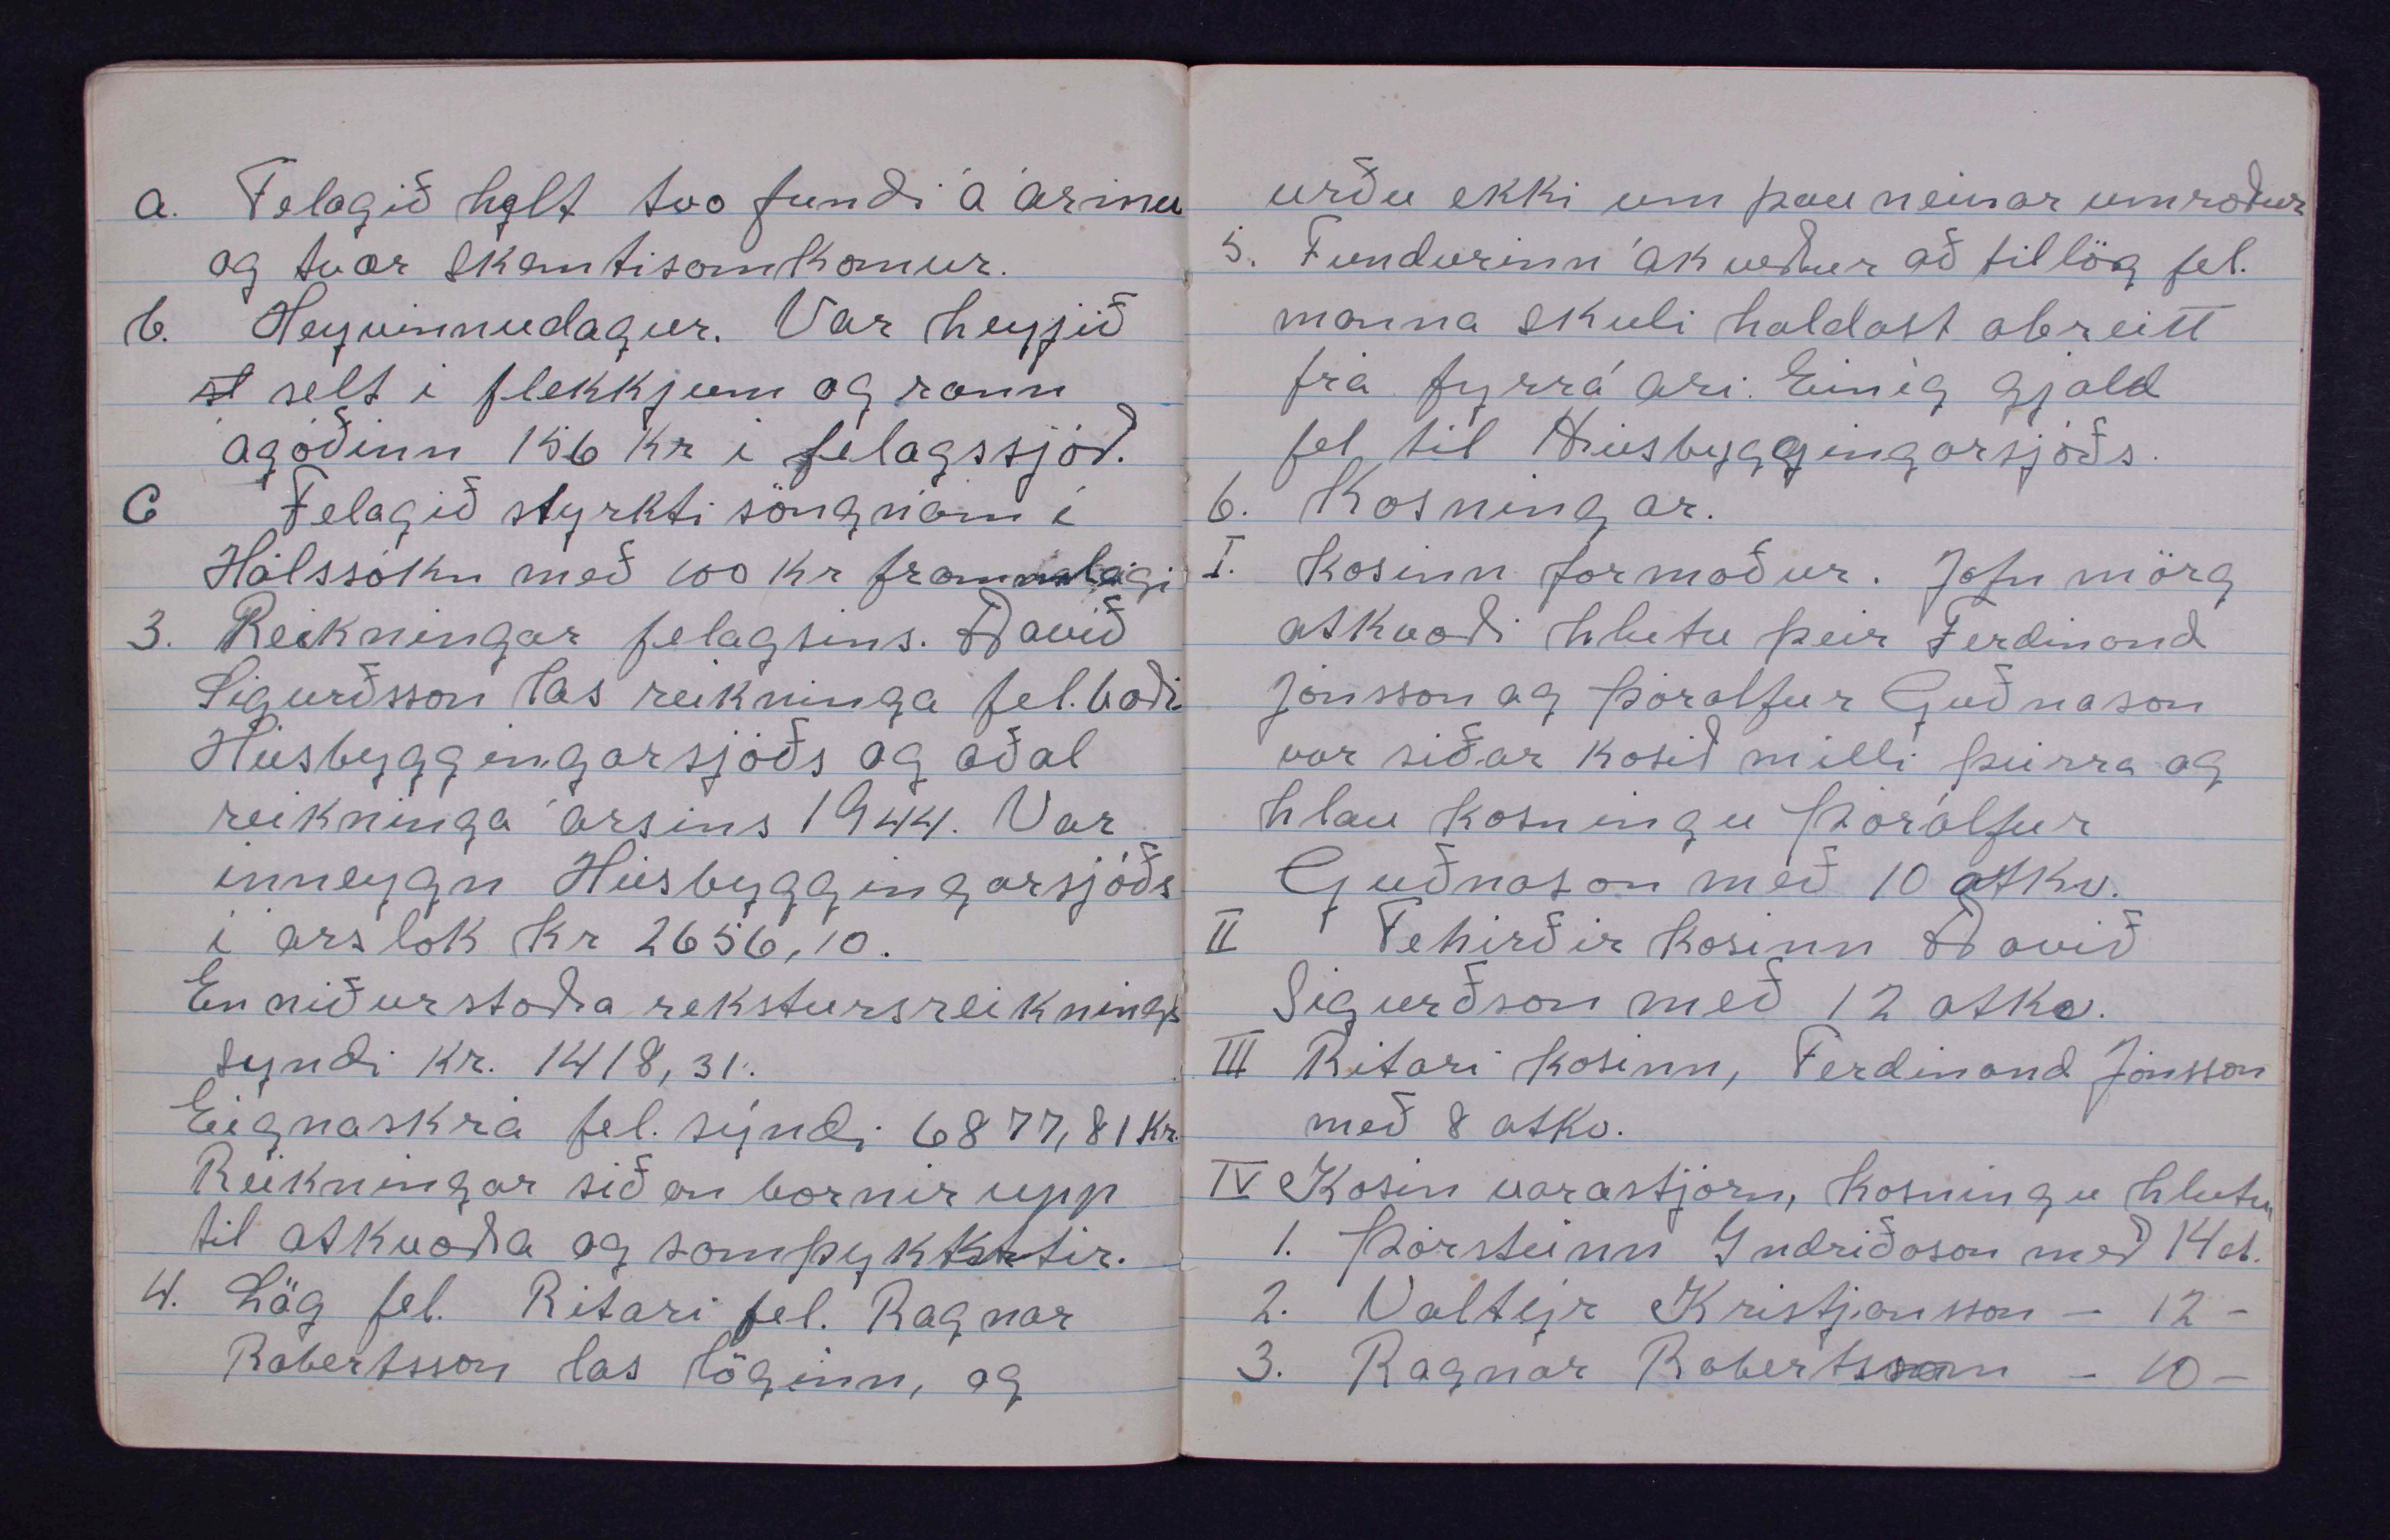 a. Felagið helt tvo fundi á árinu
og tvær skemtisamkomur.
b. Heyvinnudagur. Var heyjið
st selt i flekkjum og rann
ágóðinn 156 kr i félagssjóð.
C Felagið styrkti söngnám í
Hálssókn með 100 kr frammlagi
3. Reikningar felagsins. Davið
Sigurðsson las reikninga fel. bæði
Húsbyggingarsjóðs og aðal
reikninga ársins 1944. Var
inneygn Húsbyggingarsjóðs
i árslok kr 2656,10.
En niðurstaða rekstursreiknings
syndi kr. 1418,31.
Eignaskrá fel. sýndi 6877,81 kr.
Reikningar siðan bornir upp
til atkvæða og samþykktir.
4. Lög fel. Ritari fel. Ragnar
Robertsson las löginn, og
urðu ekki um þau neinar umræður
5. Fundurinn ákveður að tillög fel.
manna skuli haldast obreitt
frá fyrrá ári. Einig gjald
fel til Húsbyggingarsjóðs.
6. Kosningar.
I. Kosinn formaður. Jafn mörg
atkvæði hlutu þeir Ferdinand
Jónsson og Þóralfur Guðnason
var siðar kosið milli þeirra og
hlau kosningu Þórálfur
Guðnason með 10 atkv.
II Fehirðir kosinn Davið
Sigurðson með 12 atkv.
III Ritari kosinn, Ferdinand Jónsson
með 8 atkv.
IV Kosin varastjórn, kosningu hlutu
1. Þórsteinn Yndriðason með 14 at.
2. Valtýr Kristjansson – 12 –
3. Ragnar Robertsson – 10 –